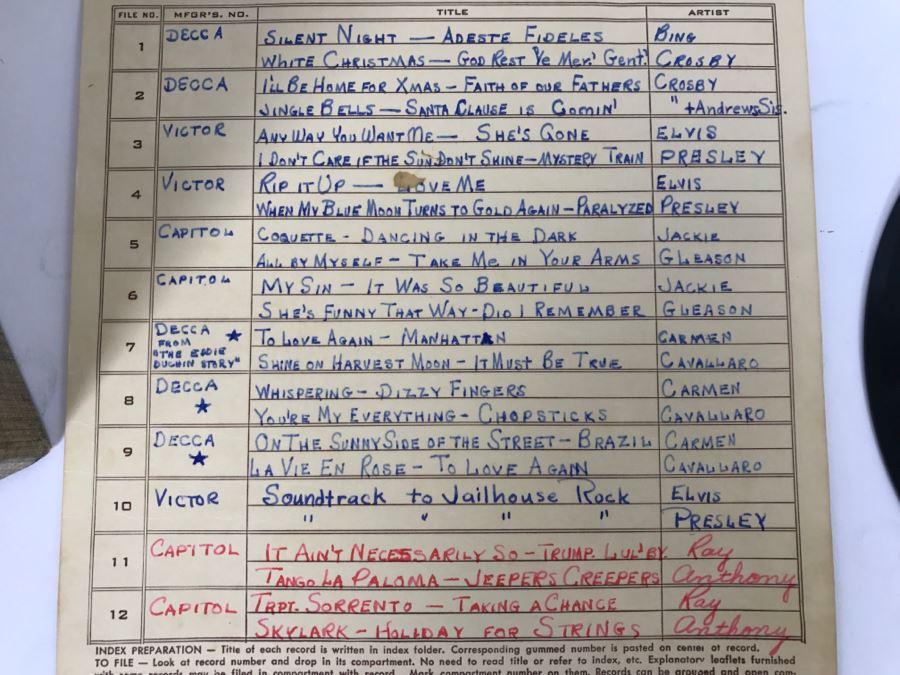 FILE NO. MFGR'S. NO. TITLE ARTIST
1 DECCA SILENT NIGHT — ADESTE FIDELES BING
WHITE CHRISTMAS — GOD REST YE MER' GENT. CROSBY
2 DECCA I'LL BE HOME FOR XMAS - FAITH OF OUR FATHERS CROSBY
JINGLE BELLS — SANTA CLAUSE IS COMIN' " + Andrews Sis.
3 VICTOR ANY WAY YOU WANT ME — SHE'S GONE ELVIS
I DON'T CARE IF THE SUN DON'T SHINE — MYSTERY TRAIN PRESLEY
4 VICTOR RIP IT UP — LOVE ME ELVIS
WHEN MY BLUE MOON TURNS TO GOLD AGAIN - PARALYZED PRESLEY
5 CAPITOL COQUETTE - DANCING IN THE DARK JACKIE
ALL BY MYSELF - TAKE ME IN YOUR ARMS GLEASON
6 CAPITOL MY SIN - IT WAS SO BEAUTIFUL JACKIE
SHE'S FUNNY THAT WAY - DID I REMEMBER GLEASON
7 DECCA ★ TO LOVE AGAIN - MANHATTAN CARMEN
FROM
"THE EDDIE
DUCHIN STORY" SHINE ON HARVEST MOON - IT MUST BE TRUE CAVALLARO
8 DECCA WHISPERING - DIZZY FINGERS CARMEN
★ YOU'RE MY EVERYTHING - CHOPSTICKS CAVALLARO
9 DECCA ON THE SUNNY SIDE OF THE STREET - BRAZIL CARMEN
★ LA VIE EN ROSE - TO LOVE AGAIN CAVALLARO
10 VICTOR Soundtrack to Jailhouse Rock ELVIS
" " " " PRESLEY
11 CAPITOL IT AIN'T NECESSARILY SO - TRUMP. LUL'BY Ray
TANGO LA PALOMA - JEEPERS CREEPERS Anthony
12 CAPITOL TRPT. SORRENTO — TAKING A CHANCE Ray
SKYLARK - HOLIDAY FOR STRINGS Anthony
INDEX PREPARATION — Title of each record is written in index folder. Corresponding gummed number is pasted on center of record.
TO FILE — Look at record number and drop in its compartment. No need to read title or refer to index, etc. Explanatory leaflets furnished
with some records may be filed in compartment with record. Mark compartment number on them. Records can be grouped and open com-